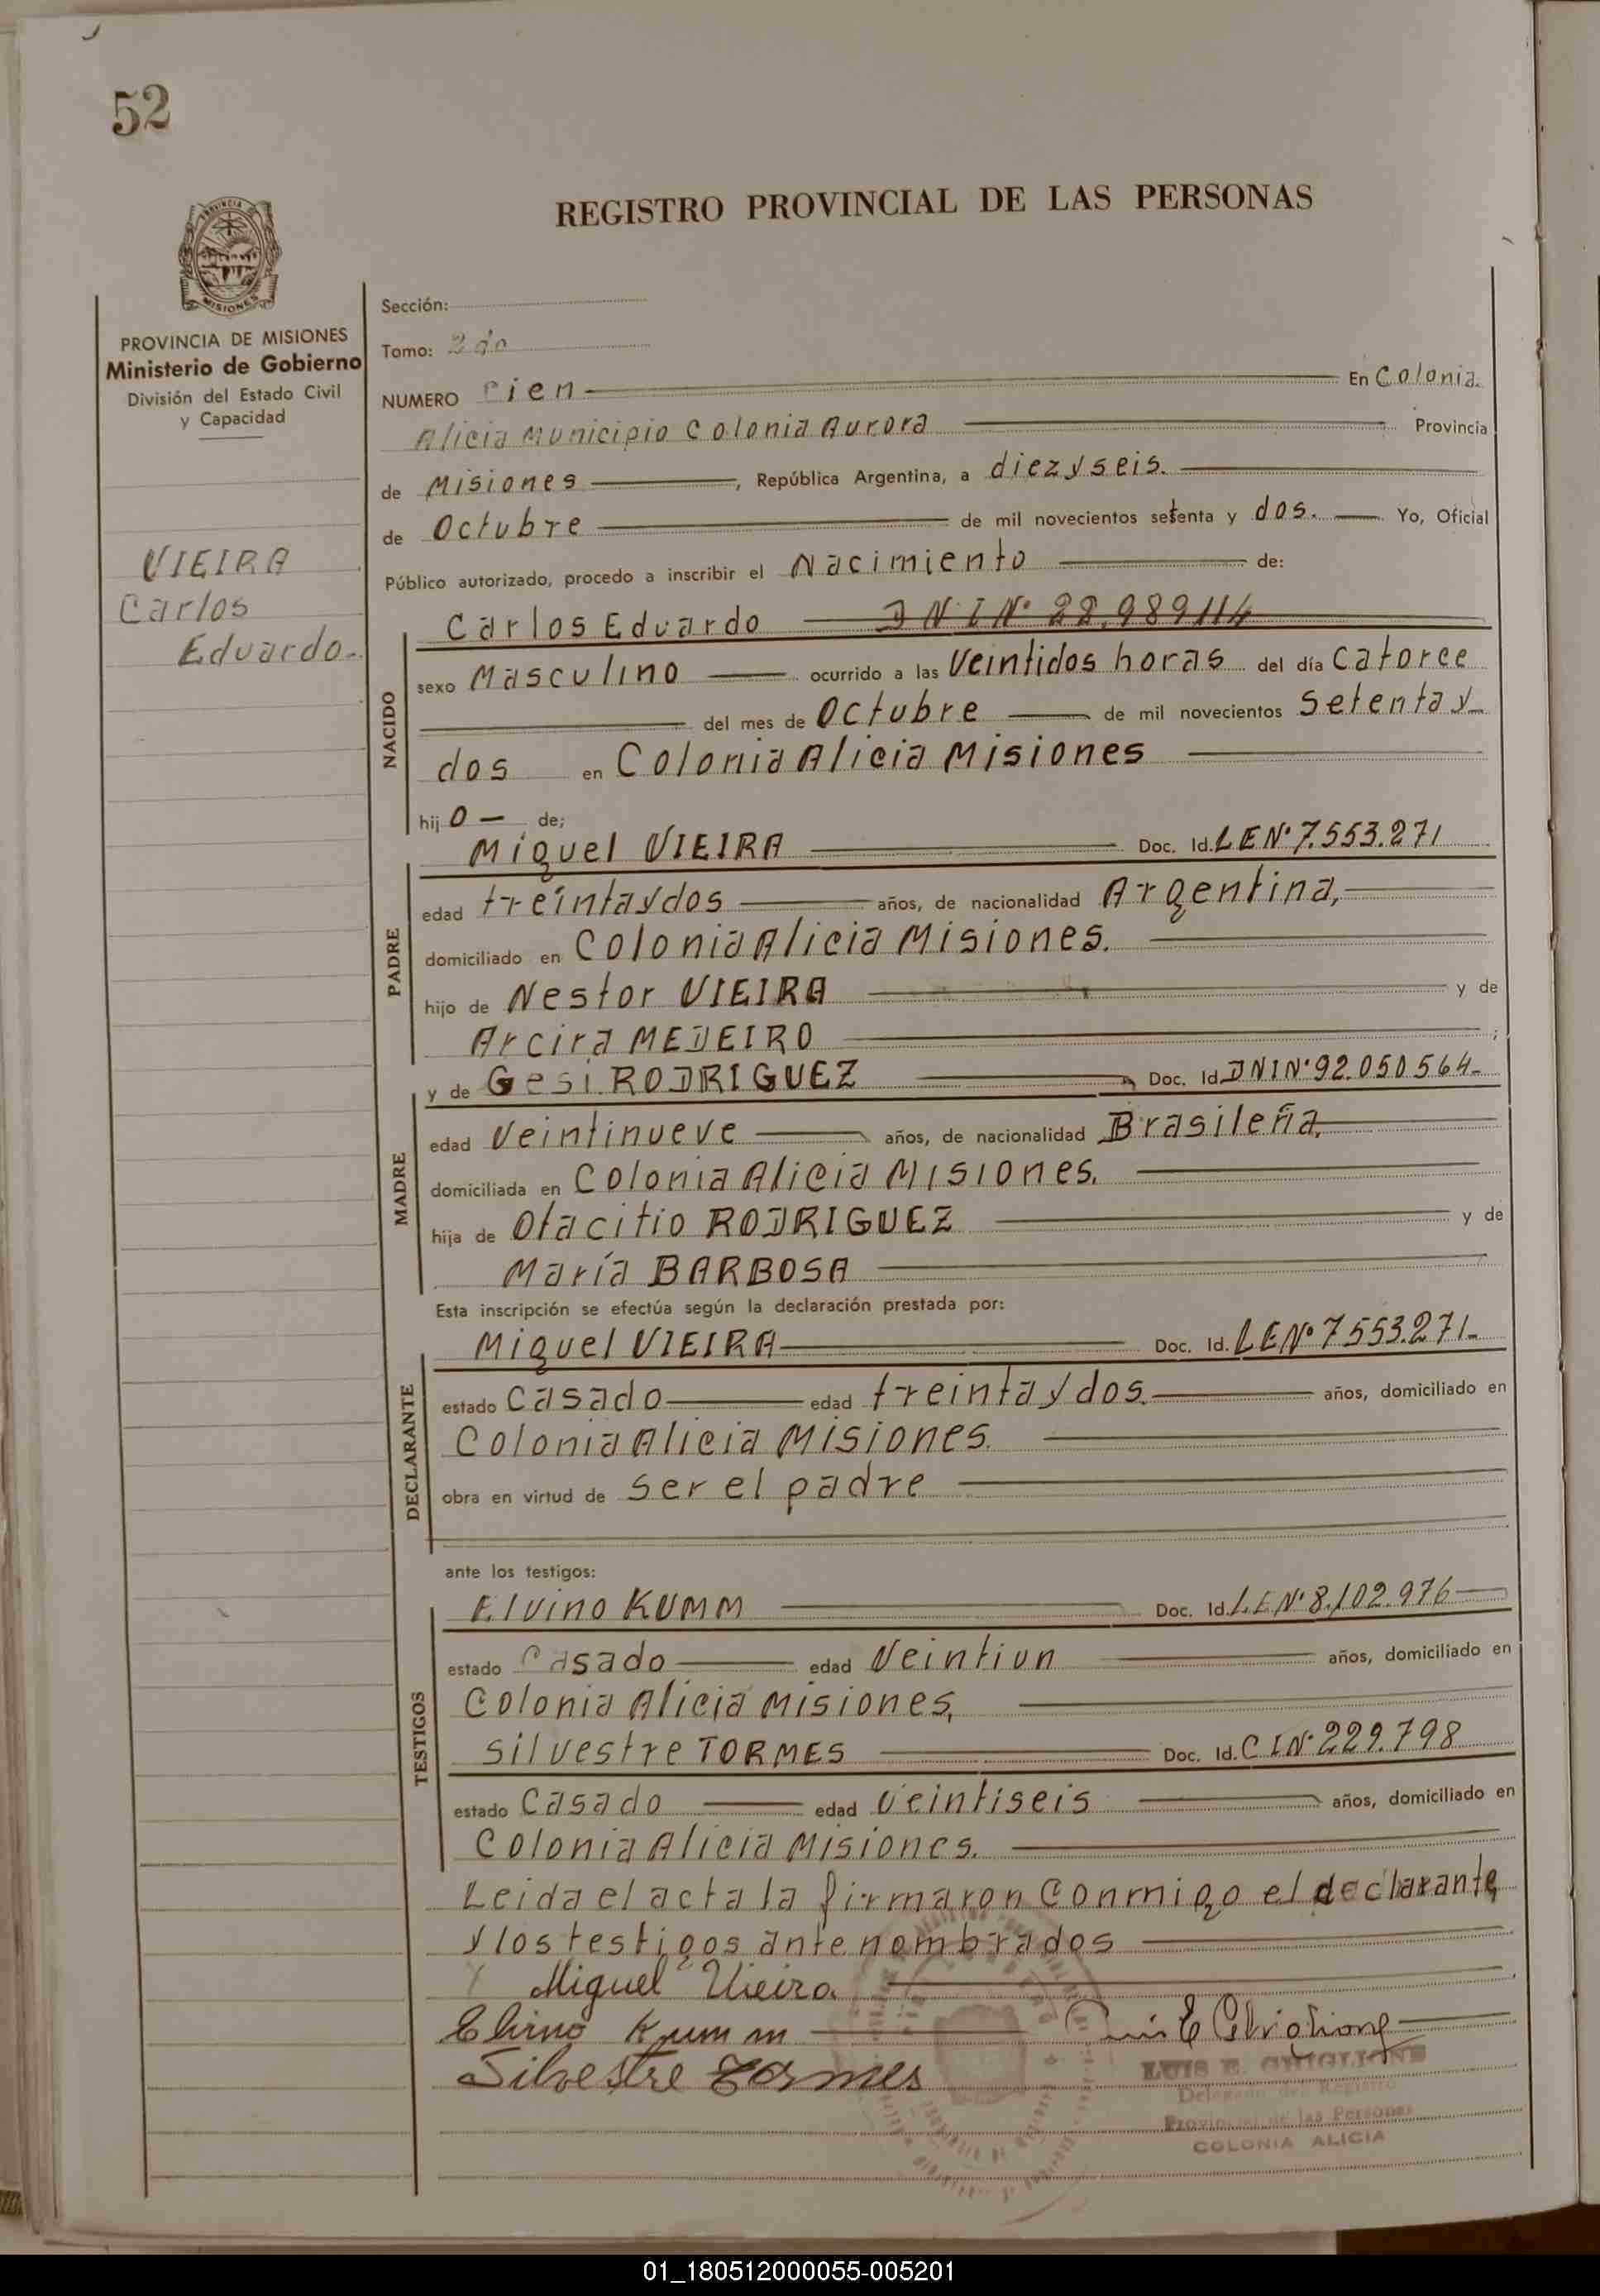 52
REGISTRO PROVINCIAL DE LAS PERSONAS
PROVINCIA
MISIONES
PROVINCIA DE MISIONES
Ministerio de Gobierno
División del Estado Civil
y Capacidad
VIEIRA
Carlos
Eduardo.
Sección:
Tomo: 2do
NUMERO Cien En Colonia
Alicia Municipio Colonia Aurora Provincia
de Misiones, República Argentina, a diezyseis.
de Octubre de mil novecientos setenta y dos. Yo, Oficial
Público autorizado, procedo a inscribir el Nacimiento de:
Carlos Eduardo DNI Nº 22.989114
NACIDO
sexo Masculino ocurrido a las Veintidos horas del día Catorce
del mes de Octubre de mil novecientos Setenta y
dos en Colonia Alicia Misiones
hijo de;
Miguel VIEIRA Doc. Id. LE Nº 7.553.271
PADRE
edad treintaydos años, de nacionalidad Argentina,
domiciliado en Colonia Alicia Misiones.
hijo de Nestor VIEIRA y de
Arcira MEDEIRO ;
y de Gesi RODRIGUEZ Doc. Id. DNI Nº 92.050564
MADRE
edad Veintinueve años, de nacionalidad Brasileña,
domiciliada en Colonia Alicia Misiones.
hija de Otacitio RODRIGUEZ y de
María BARBOSA
Esta inscripción se efectúa según la declaración prestada por:
Miguel VIEIRA Doc. Id. LE Nº 7553.271
DECLARANTE
estado Casado edad treintaydos. años, domiciliado en
Colonia Alicia Misiones.
obra en virtud de Ser el padre
ante los testigos:
Elvino KUMM Doc. Id. LE Nº 8.102.976
TESTIGOS
estado Casado edad Veintiun años, domiciliado en
Colonia Alicia Misiones,
Silvestre TORMES Doc. Id. CI Nº 229.798
estado Casado edad Veintiseis años, domiciliado en
Colonia Alicia Misiones.
Leida el acta la firmaron Conmigo el declarante
y los testigos antenombrados
Miguel Vieira
Elvino Kumm
Silvestre Tormes
LUIS E. GHIGLIONE
Delegado del Registro
Provincial de las Personas
COLONIA ALICIA
01_180512000055-005201